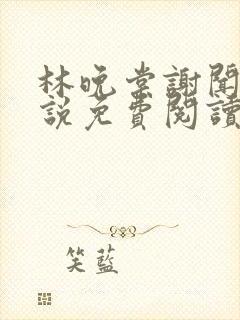 林晚棠謝聞
說免費閱讀
笑藍